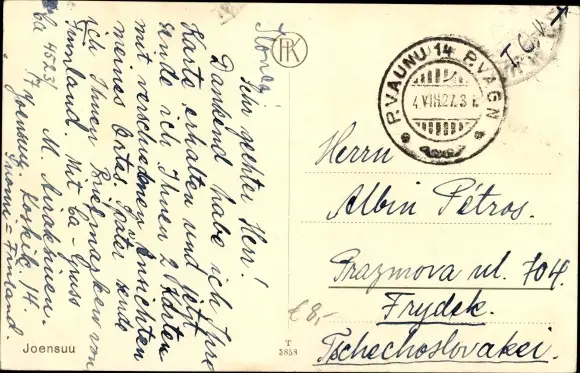 Sehr geehrter Herr!
Dankend habe ich Ihre
Karte erhalten und jetzt
sende ich Ihnen 2 Karten
mit verschiedenen Ansichten
meines Ortes. Später sende
ich Ihnen Briefmarken von
Finnland. Mit Ca-Gruss
M.
Joensuu. Koskik. 14.
Suomi = Finland.
Joensuu
T
3838
PK
P.VAUNU 14 P.VAGN
4.VIII.27.
T.C.V.
Herrn
Albin Pétros.
Prazmova ul. 704.
Frydek.
Tschechoslovakei.
€8,-